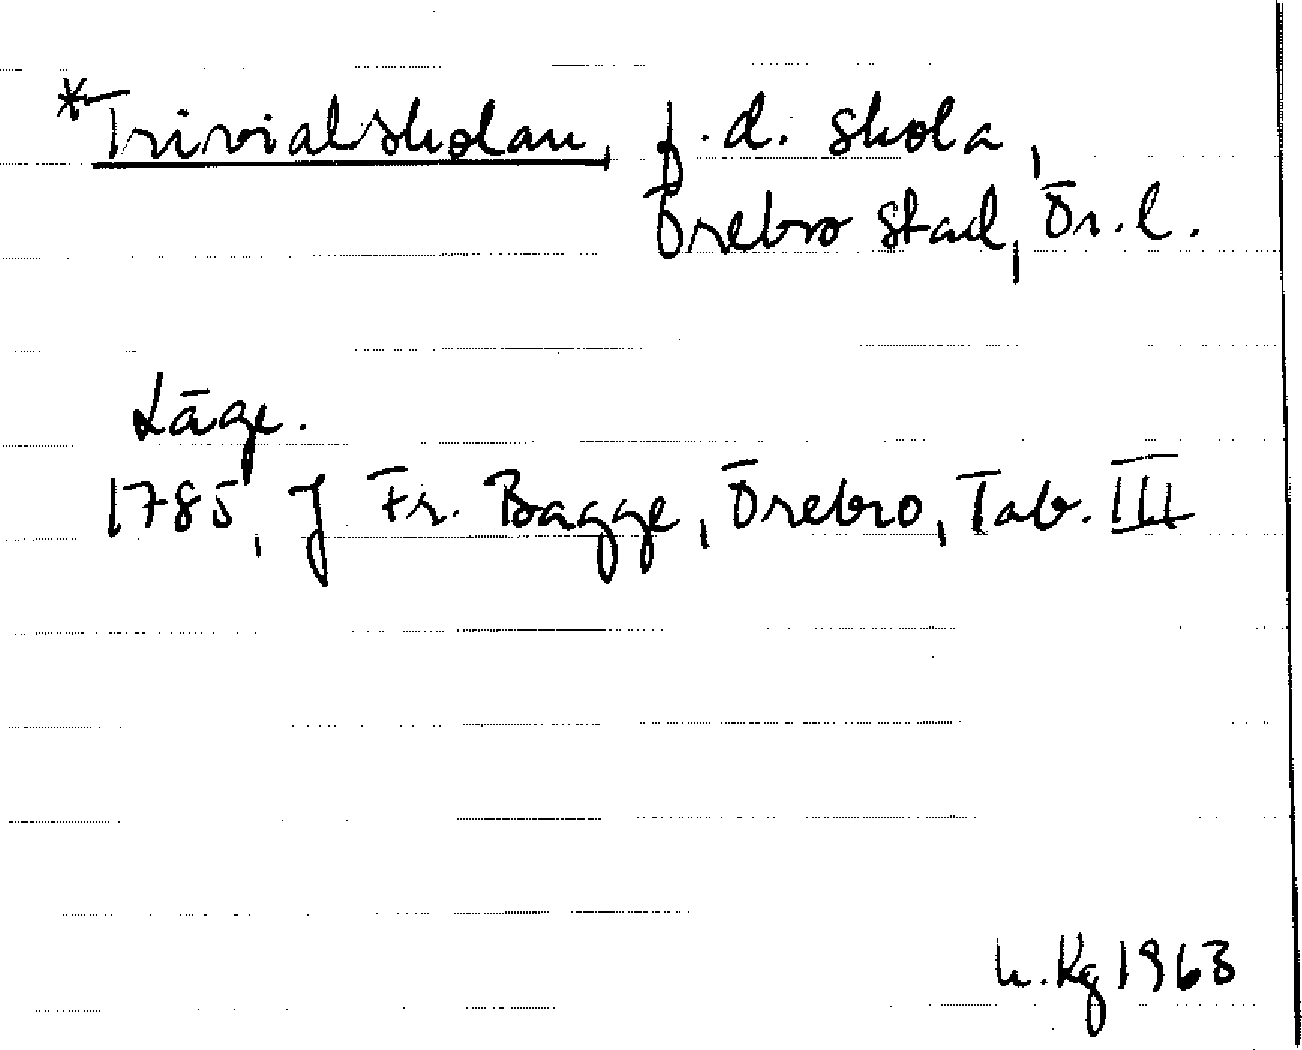 *Trivialskolan, f.d. skola,
Örebro stad, Ör.l.
Läge.
1785, J Fr. Bagge, Örebro, Tab. III
h.Kg 1963